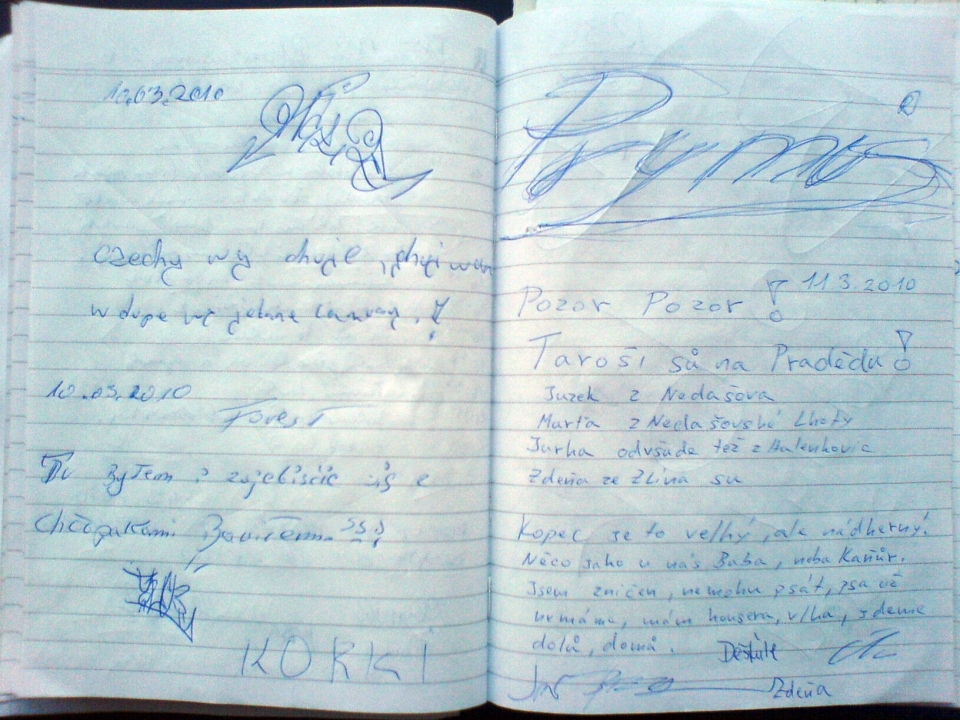 10.03.2010
czechy wy chuje, chuj wam
w dupe wy jebane
10.03.2010
Forest
Tu byłem i zajebiście się z
chłopakami Bawiłem
KORKI
Prymos
Pozor Pozor! 11.3.2010
Taroši sů na Pradědu!
Juzek z Nedašova
Murťa z Nedašovské Lhoty
Jurka odvšude též z Halenkovic
Zdeňa ze Zlína su
Kopec je to velký, ale nádherný!
Něco jako u nás Baba, neba Kaňůr.
Jsem zničen, nemohu psát, psa už
nemáme, mám housera, vlha, jdeme
dolů, domů.
Zdeňa